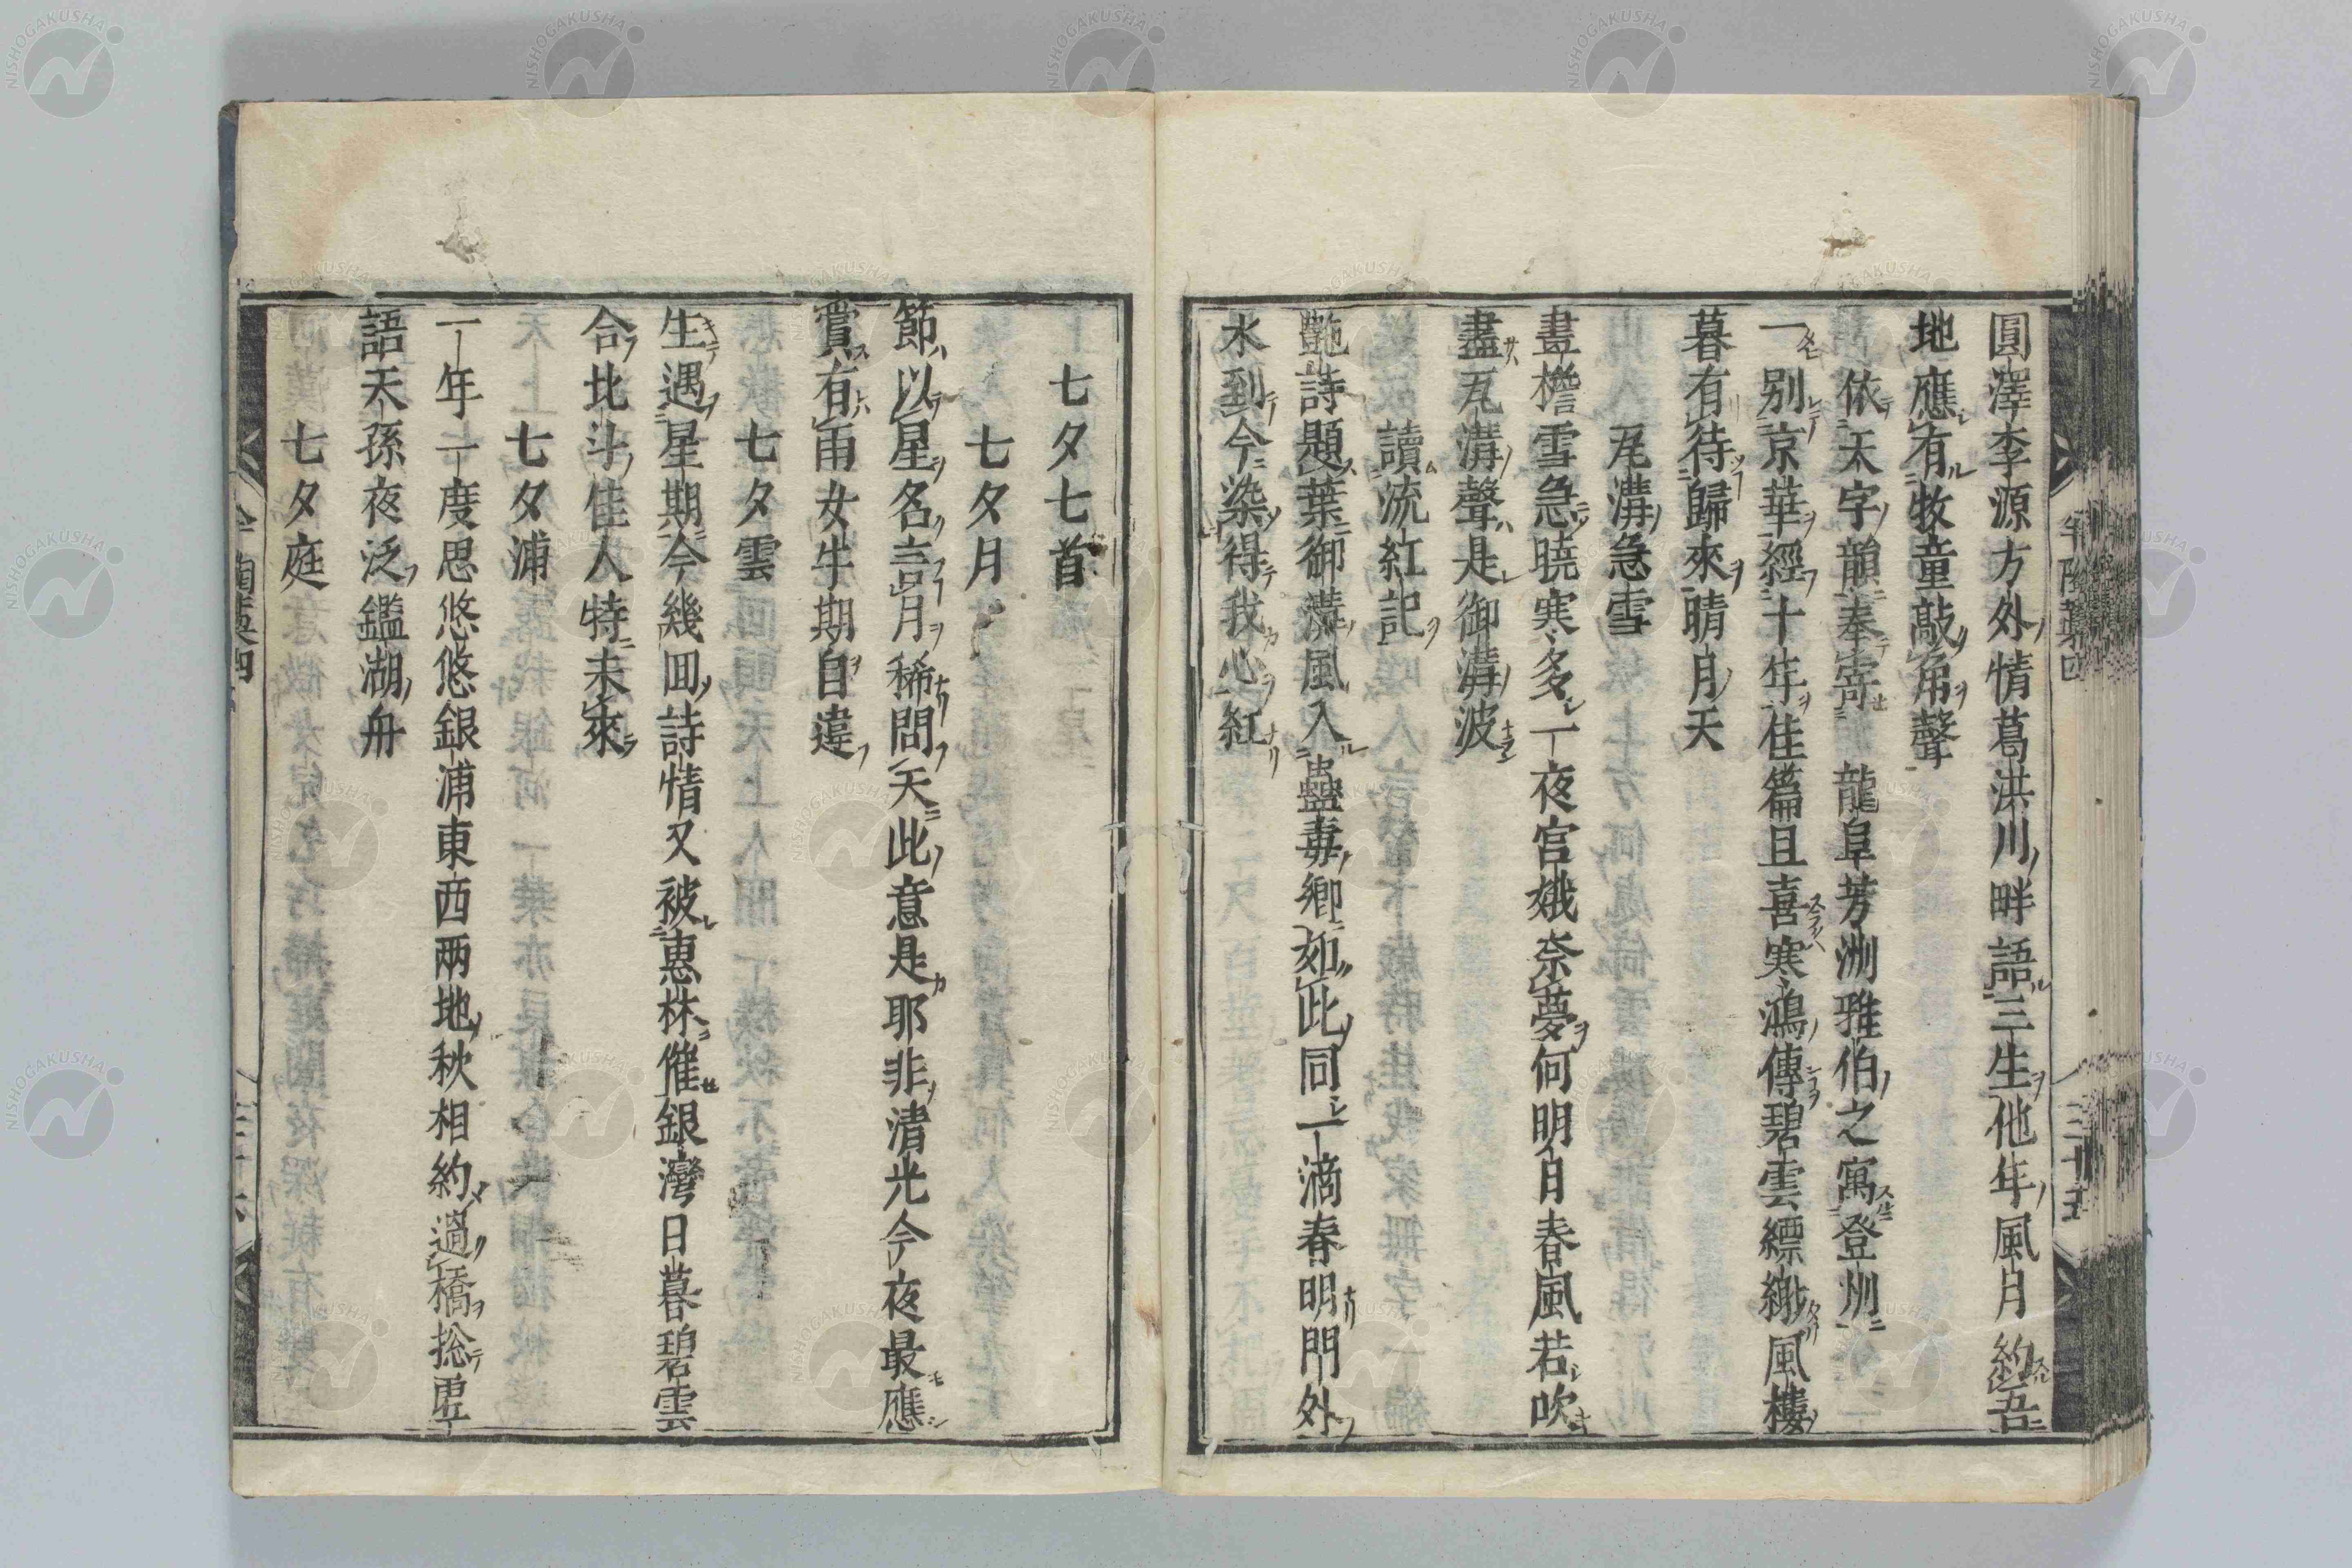 圓澤李源方外情葛洪川畔語三生他年風月約吾
地應有牧童敲角聲
依天字韻奉寄龍阜芳洲雅伯之寓登州
一別京華經十年佳篇且喜寒鴻傳碧雲縹緲風樓
暮有待歸來晴月天
瓦溝急雪
晝檐雪急曉寒多一夜宮娥奈夢何明日春風若吹
盡瓦溝聲是御溝波
讀流紅記
艶詩題葉御溝風入蠱毒鄉如此同一滴春明門外
水到今染得我心紅
七夕七首
七夕月
節以星名言月稀問天此意是耶非清光今夜最應
賞有雨女牛期自違
七夕雲
生遇星期今幾回詩情又被惠林催銀灣日暮碧雲
合比斗佳人特未來
七夕浦
一年一度思悠悠銀浦東西兩地秋相約過橋捴虛
語天孫夜泛鑑湖舟
七夕庭